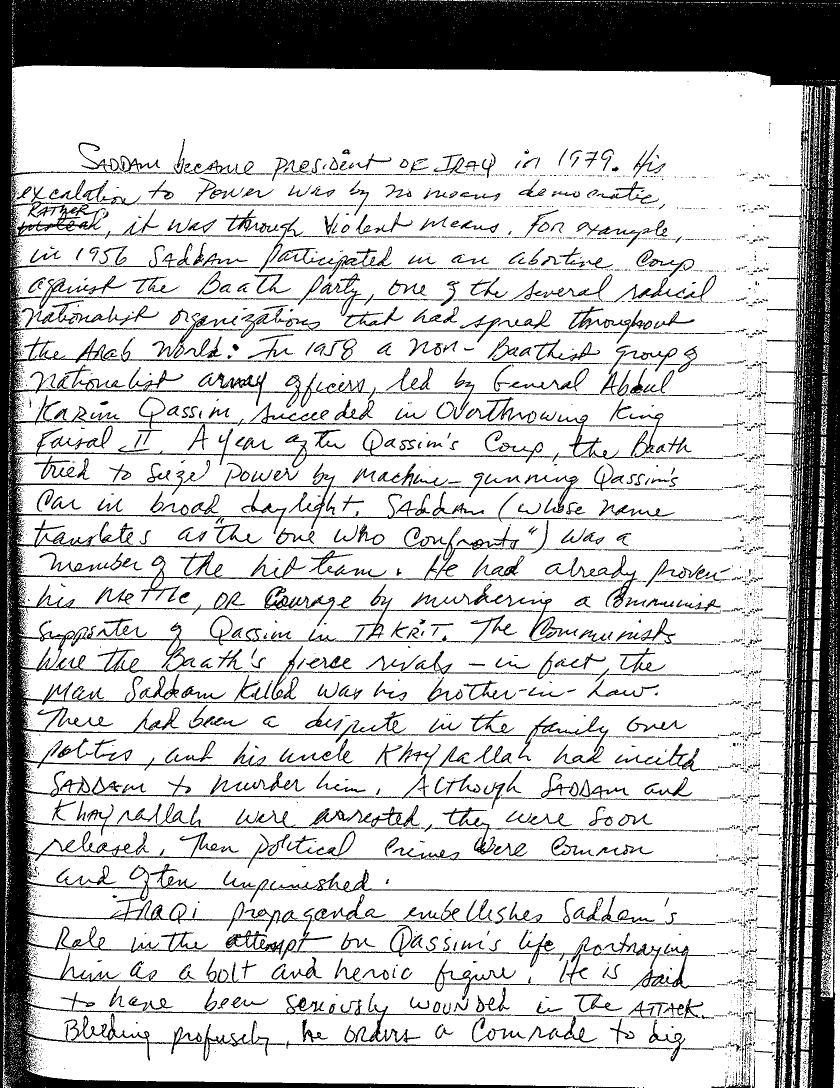 SADDAM became president OF IRAQ in 1979. His
excalation to Power was by no means democratic,
RATHER
instead, it was through Violent means. For example,
in 1956 SADDAM participated in an abortive Coup
against the Baath Party, one of the several radical
nationalist organizations that had spread throughout
the Arab World. In 1958 a Non-Baathist group of
nationalist army officers, led by General Abdul
Kazim Qassim, succeeded in Overthrowing King
Faisal II. A year after Qassim's Coup, the Baath
tried to Seize Power by machine-gunning Qassim's
Car in broad daylight. SADDAM (whose name
translates as "the one WHO Confronts") was a
member of the hit team. He had already proven
his mettle, OR Courage by murdering a Communist
Supporter of Qassim in TAKRIT. The Communists
Were the Baath's fierce rivals – in fact, the
Man Saddam Killed was his brother-in-Law.
There had been a dispute in the family over
politics, and his uncle KHAYRALLAH had incited
SADDAM to murder him. Although SADDAM and
KHAYRALLAH were arrested, they were soon
released. Then political Crimes Were Common
and often unpunished.
IRAQi propaganda embellishes Saddam's
Role in the attempt on Qassim's life, portraying
him as a bolt and heroic figure. He is said
to have been seriously WOUNDED in the ATTACK.
Bleeding profusely, he orders a Comrade to dig